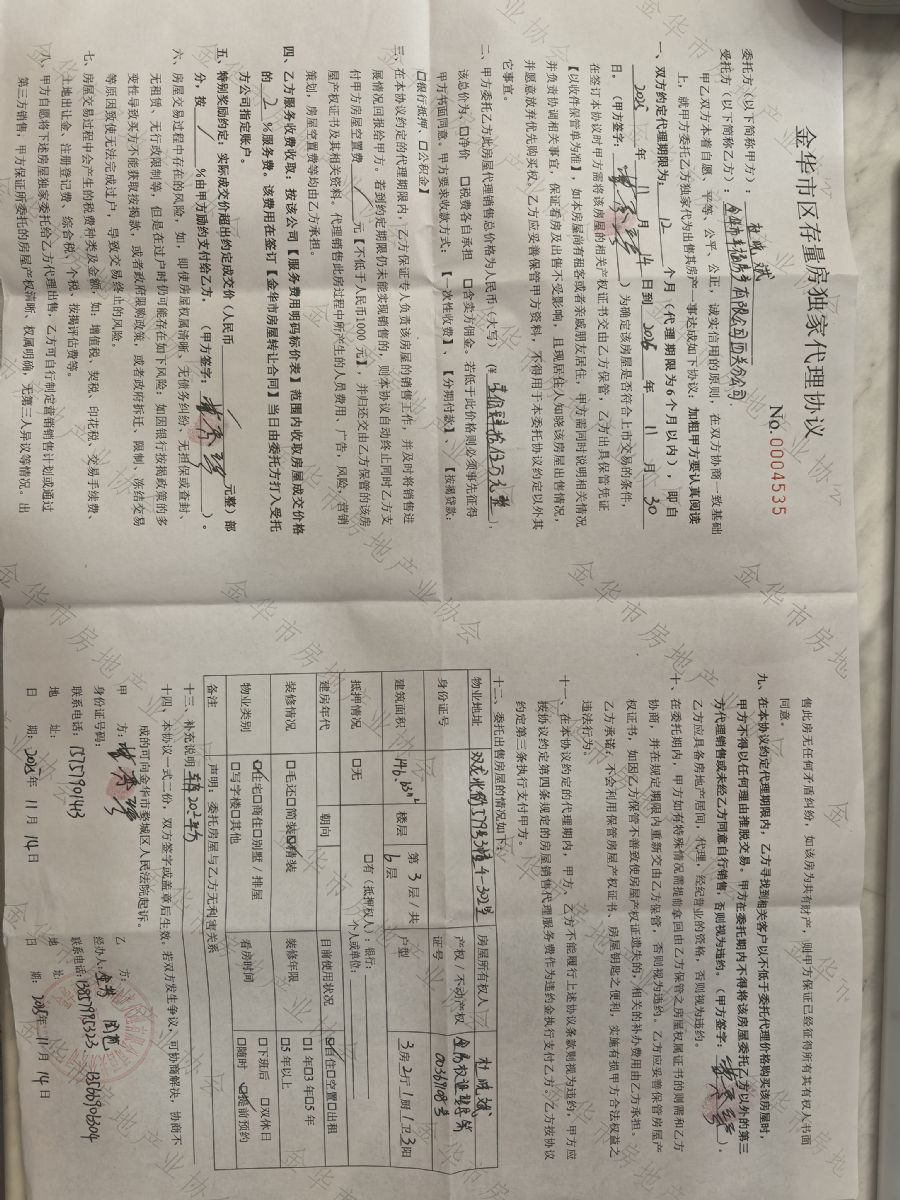 金华市区存量房独家代理协议
No.0004535
委托方（以下简称甲方）：杜晓斌
受托方（以下简称乙方）：
甲乙双方本着自愿，平等，公平、公正，诚实信用的原则，在双方协商一致基础
上，就甲方委托乙方独家代为出售其房产一事达成如下协议，加粗甲方要认真阅读
一、双方约定代理期限为：12个月（代理期限为6个月以内），即自
2025年11月14日到2026年11月30
日。（甲方签字：）为确定该房屋是否符合上市交易的条件，
在签订本协议时甲方需将该房屋的相关产权证书交由乙方保管，乙方出具保管凭证
【以收件保管单为准】，如本房屋尚有租客或者亲戚朋友居住，甲方需同时说明相关情况
并负责协调相关事宜，保证看房及出售不受影响，且现居住人知晓该房屋出售情况，
并愿意放弃优先购买权。乙方应妥善保管甲方资料，不得用于本委托协议约定以外其
它事宜。
二、甲方委托乙方此房屋代理销售总价格为人民币（大写）
该总价为：□净价 □税费各自承担 □含卖方佣金。若低于此价格则必须事先征得
甲方书面同意。甲方要求收款方式：【一次性收费】、【分期付款】、【按揭贷款：
□银行抵押、□公积金】
三、在本协议约定的代理期限内，乙方保证专人负责该房屋的销售工作，并及时将销售进
展情况回报给甲方。若到约定期限仍未能实现销售的，则本协议自动终止同时乙方支
付甲方房屋空置费/元【不低于人民币1000元】，并归还交由乙方保管的该房
屋产权证书及其相关资料。代理销售此房过程中所产生的人员费用、广告，风险，营销
策划，房屋空置费等均由乙方承担。
四、乙方服务收费收取，按该公司【服务费用明码标价表】范围内收取房屋成交价格
的2%服务费。该费用在签订【金华市房屋转让合同】当日由委托方打入受托
方公司指定账户。
五、特别奖励约定：实际成交价超出约定成交价（人民币/元整）部
分，按/%由甲方励约支付给乙方。（甲方签字：）。
六、房屋交易过程中存在的风险，如，即使房屋权属清晰、无债务纠纷、无担保或查封、
无租赁、无行政限制等，但是在过户时仍可能存在如下风险：如因银行按揭政策的多
变性导致买方不能获取按揭款，或者政府限购政策，或者政府拆迁、限制、冻结交易
等原因致使无法完成过户，导致交易终止的风险。
七、房屋交易过程中会产生的税费种类及金额，如：增值税、契税、印花税、交易手续费、
土地出让金、注册登记费、综合税、个税、按揭评估费等。
八、甲方自愿将下述房屋独家委托给乙方代理出售，乙方可自行制定营销销售计划或通过
第三方销售，甲方保证所委托的房屋产权清晰、权属明确、无第三人异议等情况。出
售此房无任何矛盾纠纷，如该房为共有财产，则甲方保证已经征得所有共有权人书面
同意。
九、在本协议约定代理期限内，乙方寻找到相关客户以不低于委托代理价格购买该房屋时，
甲方不得以任何理由推脱交易。甲方在委托期内不得将该房屋委托乙方以外的第三
方代理销售或未经乙方同意自行销售，否则视为违约。（甲方签字：）。
乙方应具备房地产居间，代理，经纪营业的资格，否则视为违约。
十、在委托期内，甲方如有特殊情况需提前拿回由乙方保管之房屋权属证书的则需和乙方
协商，并在规定期限内重新交由乙方保管，否则视为违约。乙方应妥善保管房屋产
权证书，如因乙方保管不善致使房屋产权证遗失的，相关的补办费用由乙方承担。
乙方承诺，不会利用保管房屋产权证书、房屋钥匙之便利，实施有损甲方合法权益之
违法行为。
十一、在本协议约定的代理期内，甲方、乙方不能履行上述协议条款则视为违约，甲方应
按协议约定第四条规定的房屋销售代理服务费作为违约金执行支付乙方。乙方按协议
约定第三条执行支付甲方。
十二、委托出售房屋的情况如下：
物业地址 房屋所有权人 杜晓斌
身份证号 产权/不动产权证号
建筑面积 146.83m² 楼层 第3层/共6层 户型 3房2厅1厨1卫3阳
抵押情况 □无 □有（抵押权人）：银行： 个人或单位：
建房年代 朝向 目前使用状况 □自住□空置□出租
装修情况 □毛坯□简装□精装 装修年限 □1年□3年□5年 □5年以上
物业类别 □住宅□商住□别墅/排屋 □写字楼□其他 看房时间 □下班后 □双休日 □随时 □提前预约
备注 声明：委托房屋与乙方无利害关系
十三、补充说明
十四、本协议一式二份，双方签字或盖章后生效，若双方发生争议，可协商解决，协商不
成的可向金华市婺城区人民法院起诉。
甲 方：
身份证号码：
联系电话：
地 址：
日 期：2025年11月14日
乙 方：
经办人：
联系电话：13857985323
地 址：
日 期：2025年11月14日